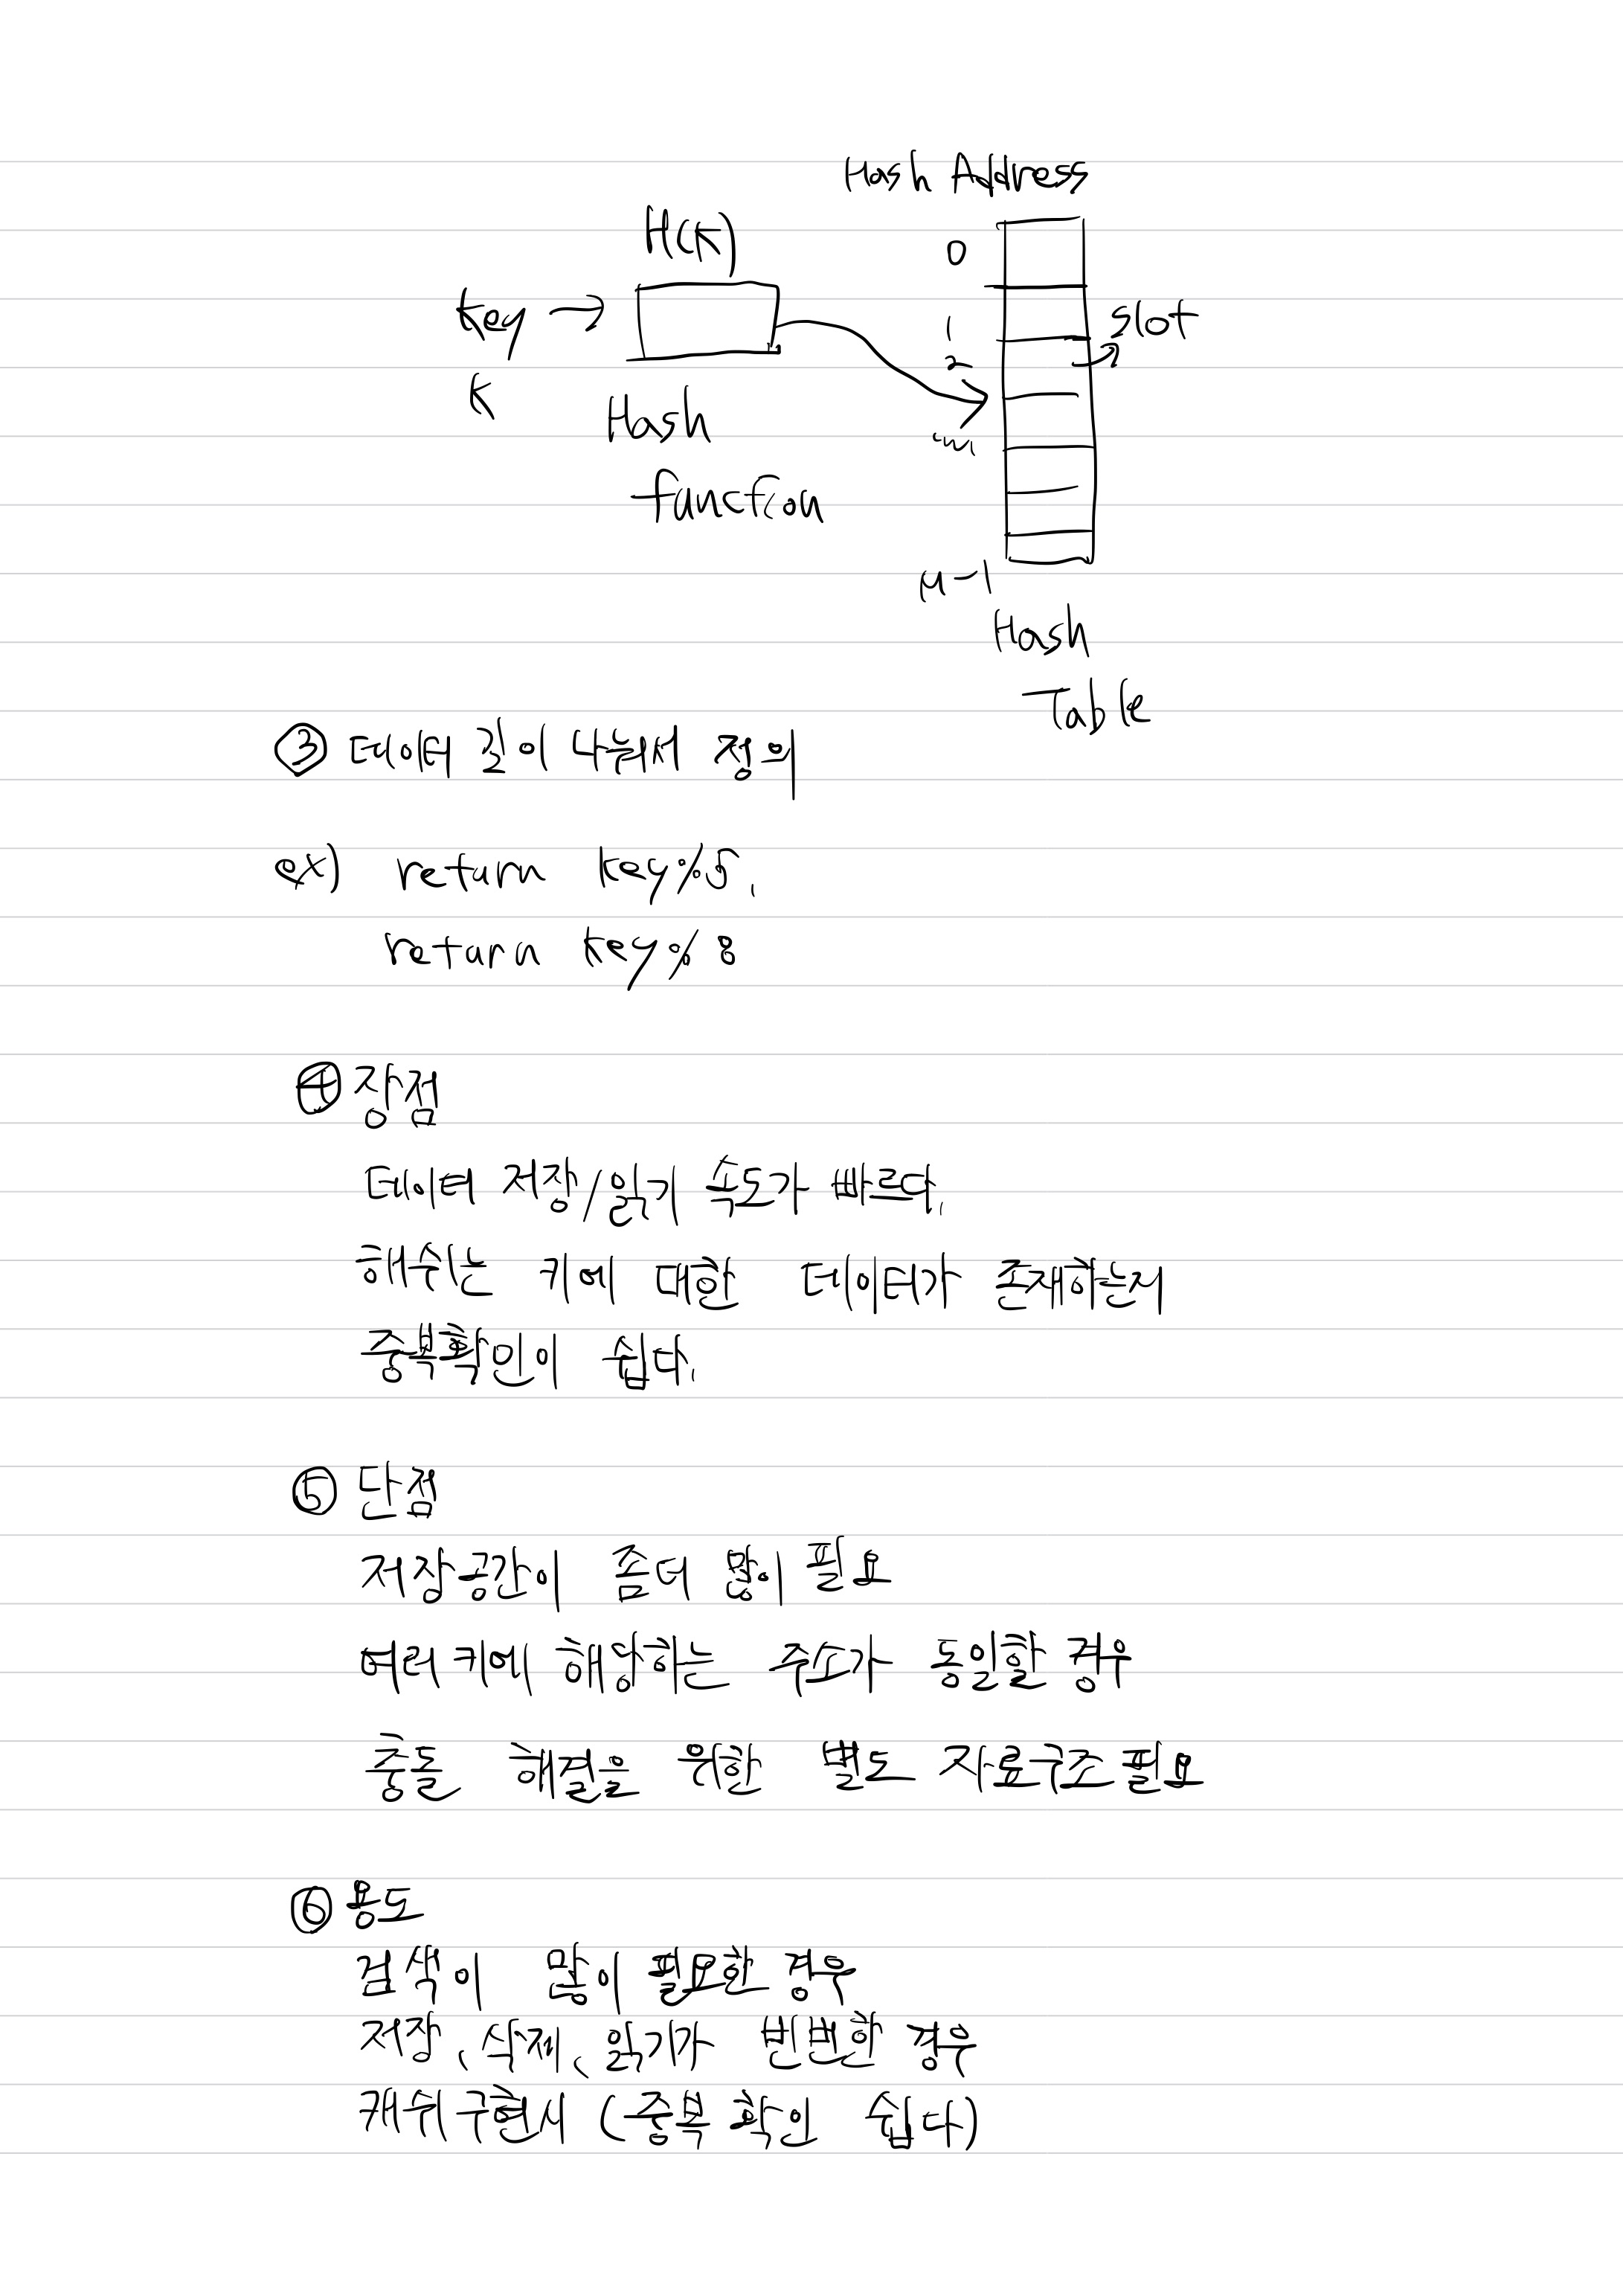 Hash Address
H(K)
0
key →
1
slot
2
K
Hash
function
M-1
Hash
Table
③ 데이터 길이 나눠서 정의
ex) return key%5,
return key%8
④ 장점
데이터 저장/읽기 속도가 빠르다.
해쉬는 키에 대한 데이터가 존재하는지
중복확인이 쉽다.
⑤ 단점
저장공간이 좀더 많이 필요
여러 키에 해당하는 주소가 동일할 경우
충돌 해결을 위한 별도 자료구조 필요
⑥ 용도
검색이 많이 필요한 경우
저장, 삭제, 읽기가 빈번한 경우
캐쉬구현시 (중복 확인 쉽다)